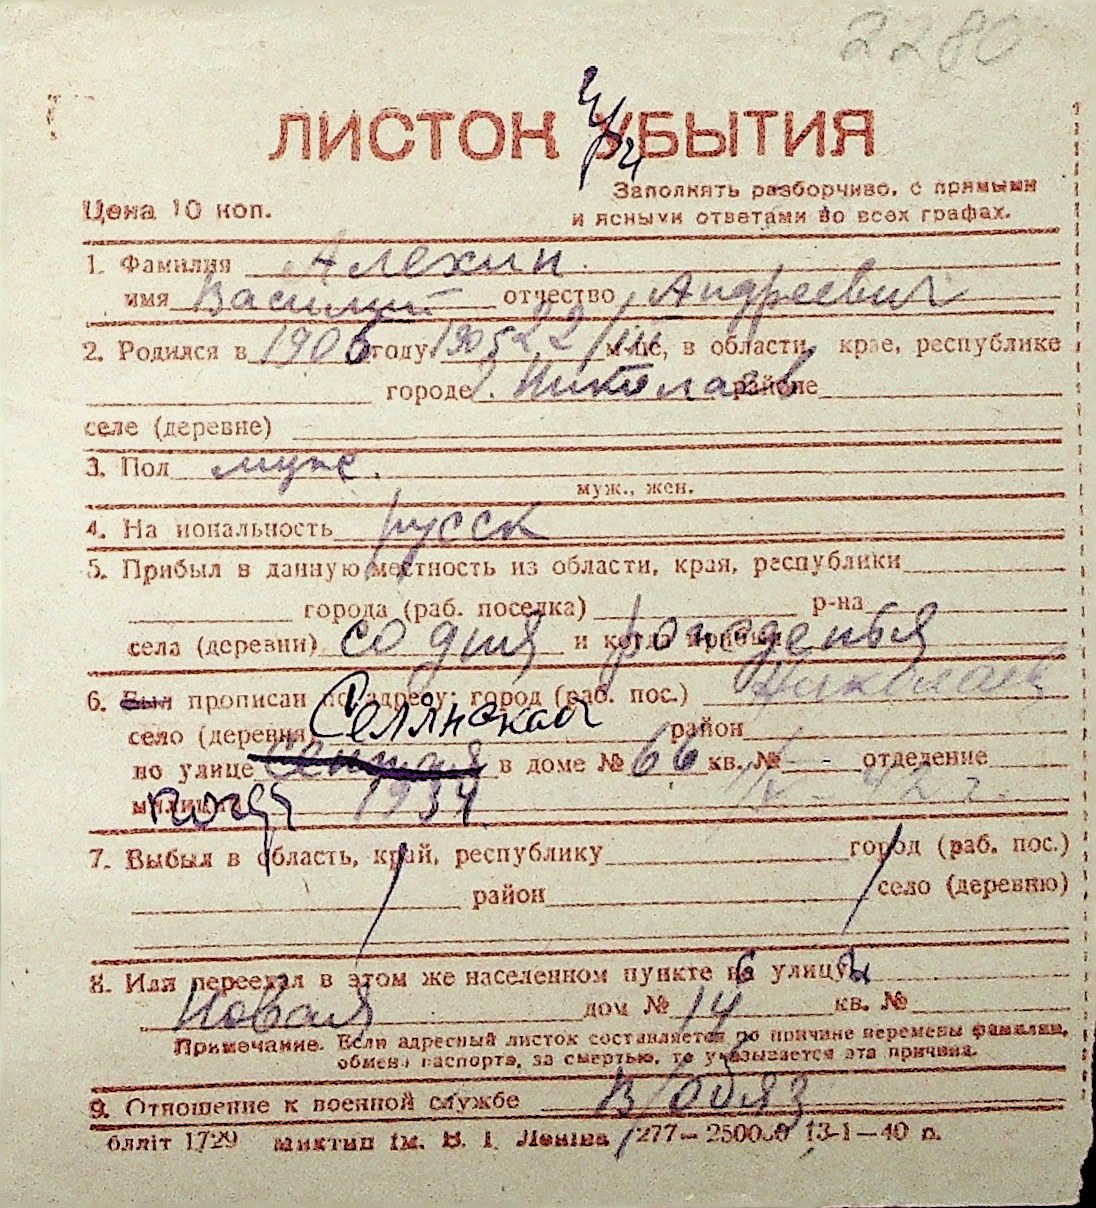 2280
ЛИСТОК УБЫТИЯ
Цена 10 коп.
Заполнять разборчиво, с прямыми
и ясными ответами во всех графах.
1. Фамилия Алехин.
имя Василий отчество Андреевич
2. Родился в 1906 году 1905 22/III м-це, в области, крае, республике
городе г. Николаев районе
селе (деревне)
3. Пол муж.
муж., жен.
4. На иональность русск
5. Прибыл в данную местность из области, края, республики
города (раб. поселка) р-на
села (деревни) со дня и когда прибыл рожденья
6. Был прописан по адресу: город (раб. пос.) Николаев
село (деревня) Селянская район
по улице в доме № 66 кв. № - отделение
милиции 1934 42 г.
7. Выбыл в область, край, республику город (раб. пос.)
район село (деревню)
8. Или переехал в этом же населенном пункте на улицу
Новая дом № 14 кв. №
Примечание. Если адресный листок составляется по причине перемены фамилии,
обмена паспорта, за смертью, то указывается эта причина.
9. Отношение к военной службе в/обяз
1729 Миктип Ім. В. І. Леніна 277— 13-1—40 п.